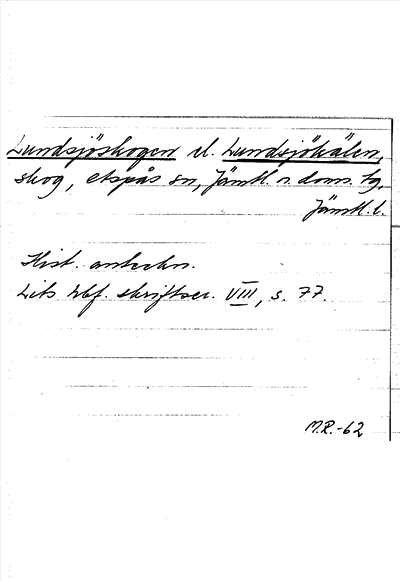 Lundsjöskogen el. Lundsjökälen,
skog, Aspås sn, Jämtl. n. doms. tg,
Jämtl. l.
Hist. anteckn.
Lits hbf. skriftser. VIII, s. 77.
M.R.-62